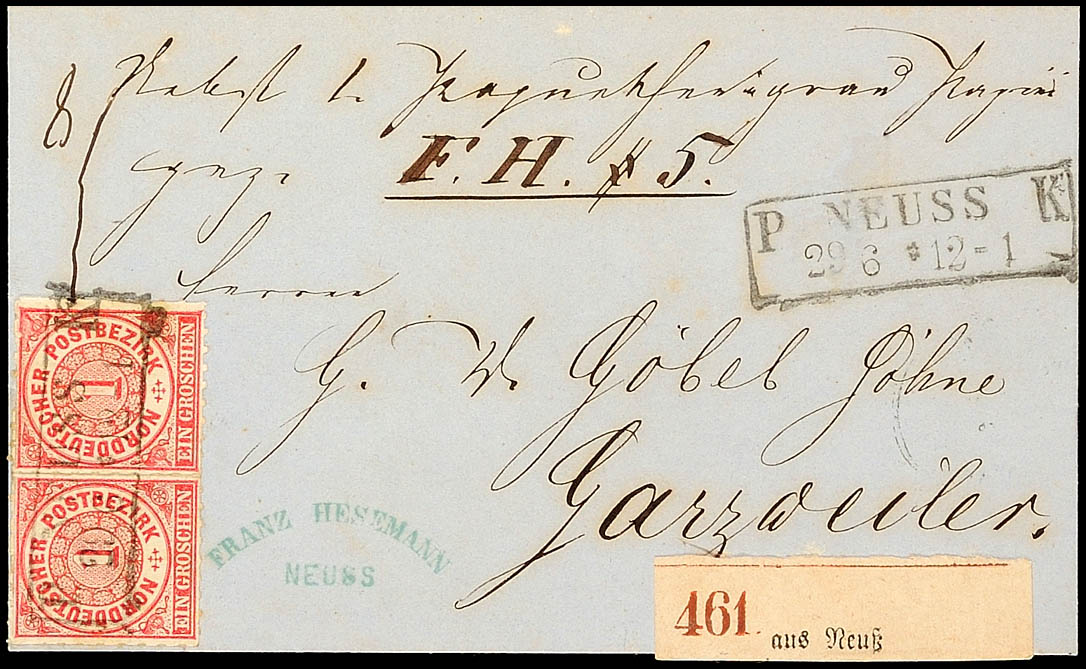 Nebst 1 Paquet
gez. F. H. # 5.
P NEUSS K
29 6 * 12-1
Herren
G. W. Göbel Söhne
Garzweiler.
NORDDEUTSCHER POSTBEZIRK
1
EIN GROSCHEN
NORDDEUTSCHER POSTBEZIRK
1
EIN GROSCHEN
FRANZ HESEMANN
NEUSS
461.
aus Neuß